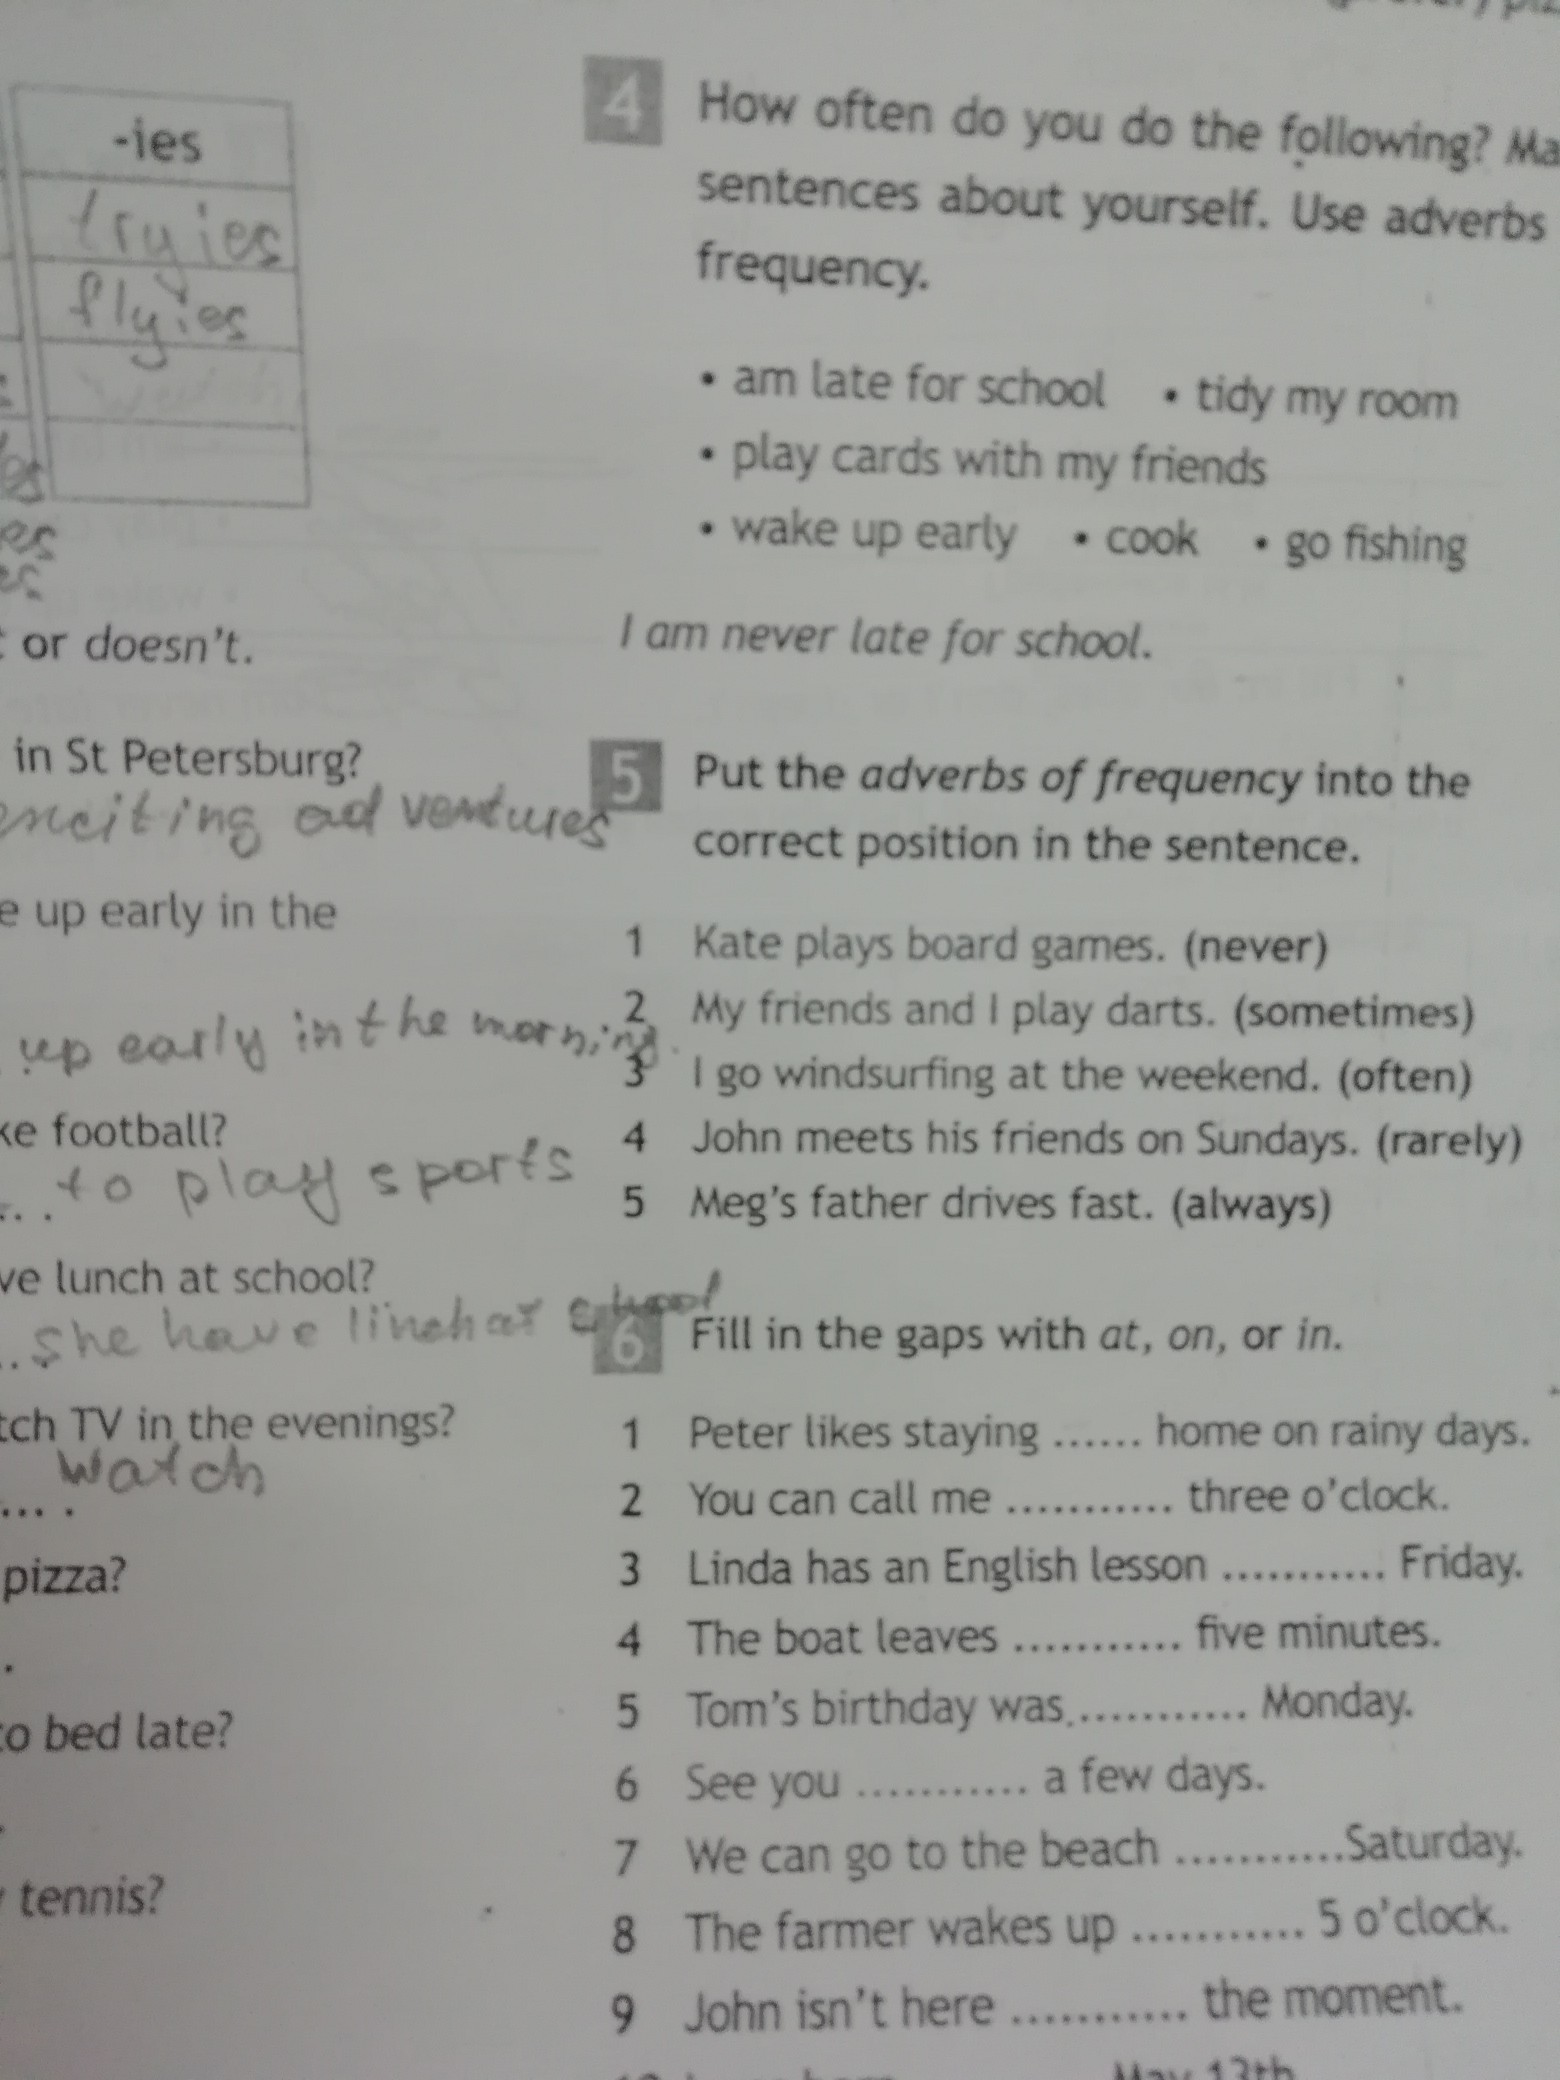 -ies
tryies
flyies
es
es
or doesn't.
in St Petersburg?
ad ventures
e up early in the
up early in the morning.
ke football?
... to play sports
ve lunch at school?
.. she have linch at school
tch TV in the evenings?
watch
... .
pizza?
.
to bed late?
tennis?
4 How often do you do the following? Ma
sentences about yourself. Use adverbs
frequency.
• am late for school • tidy my room
• play cards with my friends
• wake up early • cook • go fishing
I am never late for school.
5 Put the adverbs of frequency into the
correct position in the sentence.
1 Kate plays board games. (never)
2 My friends and I play darts. (sometimes)
3 I go windsurfing at the weekend. (often)
4 John meets his friends on Sundays. (rarely)
5 Meg's father drives fast. (always)
6 Fill in the gaps with at, on, or in.
1 Peter likes staying ...... home on rainy days.
2 You can call me ............ three o'clock.
3 Linda has an English lesson ............ Friday.
4 The boat leaves ............ five minutes.
5 Tom's birthday was ............ Monday.
6 See you ............ a few days.
7 We can go to the beach ............Saturday.
8 The farmer wakes up ............ 5 o'clock.
9 John isn't here ............ the moment.
May 13th